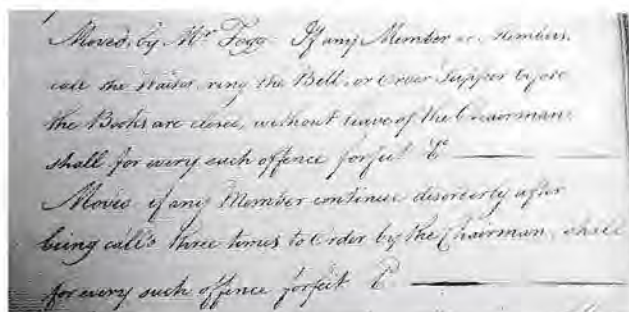 Moved, by Mr Fogg If any Member or Members
call the Waiter, ring the Bell, or Order Supper before
the Books are close, without leave of the Chairman,
shall for every such offence forfeit
Moved if any Member continue disorderly after
being call'd three times to Order by the Chairman, shall
for every such offence forfeit